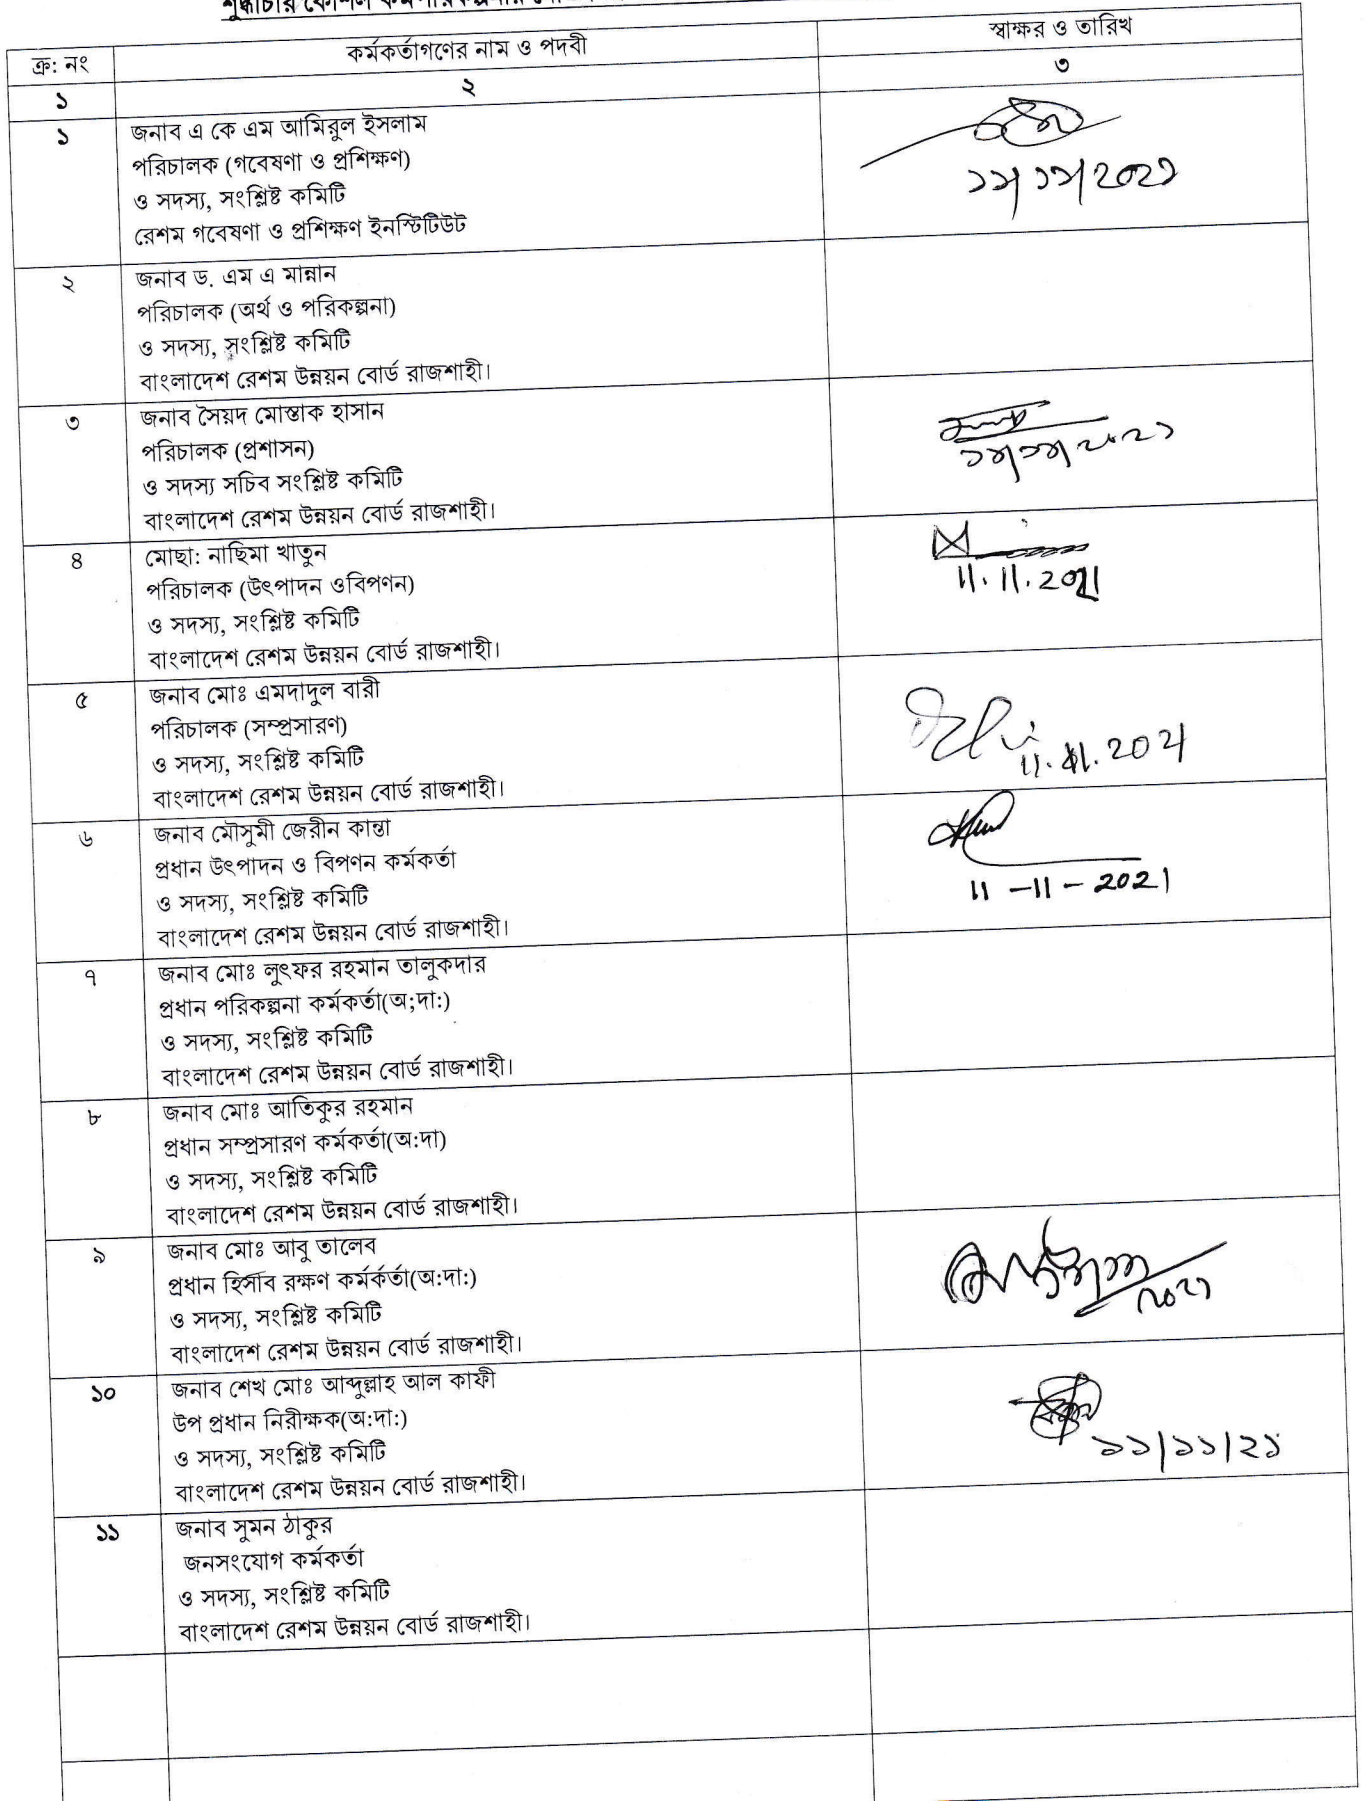 শুদ্ধাচার কৌশল
ক্র: নং
কর্মকর্তাগণের নাম ও পদবী
স্বাক্ষর ও তারিখ
১
২
৩
১
জনাব এ কে এম আমিরুল ইসলাম
পরিচালক (গবেষণা ও প্রশিক্ষণ)
ও সদস্য, সংশ্লিষ্ট কমিটি
রেশম গবেষণা ও প্রশিক্ষণ ইনস্টিটিউট
১১/১১/২০২১
২
জনাব ড. এম এ মান্নান
পরিচালক (অর্থ ও পরিকল্পনা)
ও সদস্য, সংশ্লিষ্ট কমিটি
বাংলাদেশ রেশম উন্নয়ন বোর্ড রাজশাহী।
৩
জনাব সৈয়দ মোস্তাক হাসান
পরিচালক (প্রশাসন)
ও সদস্য সচিব সংশ্লিষ্ট কমিটি
বাংলাদেশ রেশম উন্নয়ন বোর্ড রাজশাহী।
১১/১১/২০২১
৪
মোছা: নাছিমা খাতুন
পরিচালক (উৎপাদন ওবিপণন)
ও সদস্য, সংশ্লিষ্ট কমিটি
বাংলাদেশ রেশম উন্নয়ন বোর্ড রাজশাহী।
11.11.2021
৫
জনাব মোঃ এমদাদুল বারী
পরিচালক (সম্প্রসারণ)
ও সদস্য, সংশ্লিষ্ট কমিটি
বাংলাদেশ রেশম উন্নয়ন বোর্ড রাজশাহী।
11.11.2021
৬
জনাব মৌসুমী জেরীন কান্তা
প্রধান উৎপাদন ও বিপণন কর্মকর্তা
ও সদস্য, সংশ্লিষ্ট কমিটি
বাংলাদেশ রেশম উন্নয়ন বোর্ড রাজশাহী।
11-11-2021
৭
জনাব মোঃ লুৎফর রহমান তালুকদার
প্রধান পরিকল্পনা কর্মকর্তা(অ;দা:)
ও সদস্য, সংশ্লিষ্ট কমিটি
বাংলাদেশ রেশম উন্নয়ন বোর্ড রাজশাহী।
৮
জনাব মোঃ আতিকুর রহমান
প্রধান সম্প্রসারণ কর্মকর্তা(অ:দা)
ও সদস্য, সংশ্লিষ্ট কমিটি
বাংলাদেশ রেশম উন্নয়ন বোর্ড রাজশাহী।
৯
জনাব মোঃ আবু তালেব
প্রধান হিসাব রক্ষণ কর্মকর্তা(অ:দা:)
ও সদস্য, সংশ্লিষ্ট কমিটি
বাংলাদেশ রেশম উন্নয়ন বোর্ড রাজশাহী।
২০২১
১০
জনাব শেখ মোঃ আব্দুল্লাহ আল কাফী
উপ প্রধান নিরীক্ষক(অ:দা:)
ও সদস্য, সংশ্লিষ্ট কমিটি
বাংলাদেশ রেশম উন্নয়ন বোর্ড রাজশাহী।
১১/১১/২১
১১
জনাব সুমন ঠাকুর
জনসংযোগ কর্মকর্তা
ও সদস্য, সংশ্লিষ্ট কমিটি
বাংলাদেশ রেশম উন্নয়ন বোর্ড রাজশাহী।